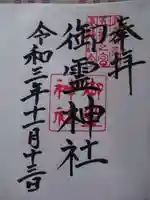 奉拝
御霊神社
令和三年十一月十三日